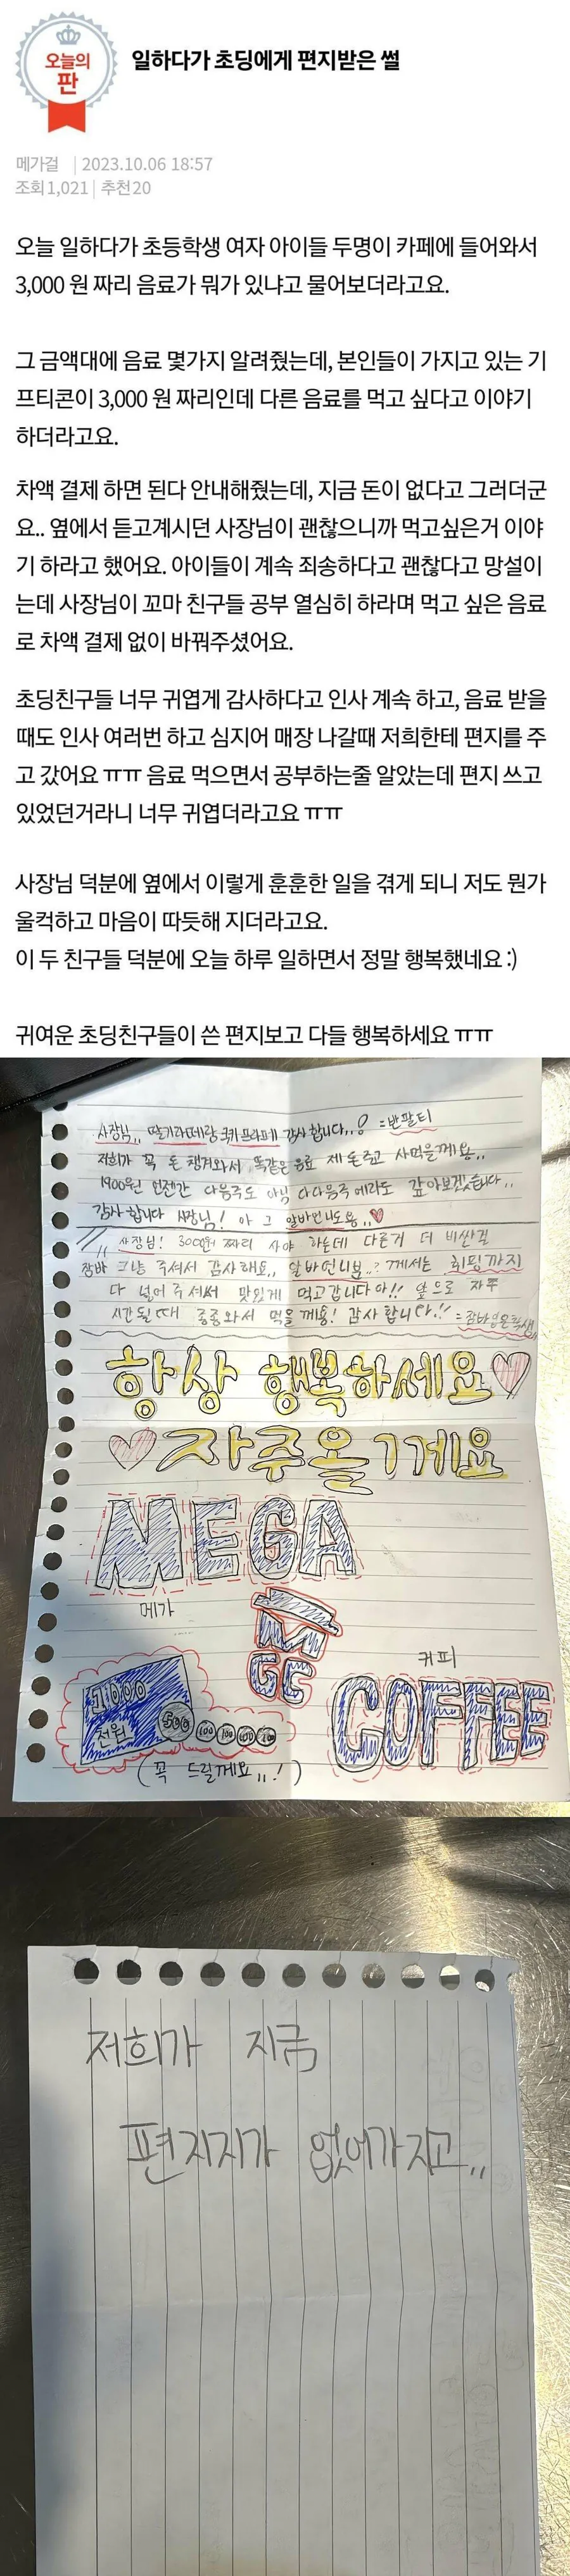 오늘의
판
일하다가 초딩에게 편지받은 썰
메가걸 | 2023.10.06 18:57
조회 1,021 | 추천 20
오늘 일하다가 초등학생 여자 아이들 두명이 카페에 들어와서
3,000 원 짜리 음료가 뭐가 있냐고 물어보더라고요.
그 금액대에 음료 몇가지 알려줬는데, 본인들이 가지고 있는 기
프티콘이 3,000 원 짜리인데 다른 음료를 먹고 싶다고 이야기
하더라고요.
차액 결제 하면 된다 안내해줬는데, 지금 돈이 없다고 그러더군
요.. 옆에서 듣고계시던 사장님이 괜찮으니까 먹고싶은거 이야
기 하라고 했어요. 아이들이 계속 죄송하다고 괜찮다고 망설이
는데 사장님이 꼬마 친구들 공부 열심히 하라며 먹고 싶은 음료
로 차액 결제 없이 바꿔주셨어요.
초딩친구들 너무 귀엽게 감사하다고 인사 계속 하고, 음료 받을
때도 인사 여러번 하고 심지어 매장 나갈때 저희한테 편지를 주
고 갔어요 ㅠㅠ 음료 먹으면서 공부하는줄 알았는데 편지 쓰고
있었던거라니 너무 귀엽더라고요 ㅠㅠ
사장님 덕분에 옆에서 이렇게 훈훈한 일을 겪게 되니 저도 뭔가
울컥하고 마음이 따듯해 지더라고요.
이 두 친구들 덕분에 오늘 하루 일하면서 정말 행복했네요 :)
귀여운 초딩친구들이 쓴 편지보고 다들 행복하세요 ㅠㅠ
사장님,, 딸기라떼랑 쿠키프라페 감사합니다,,! =반팔티
저희가 꼭 돈 챙겨와서 똑같은 음료 제 돈주고 사먹을께용,,
1900원 언젠간 다음주도 아님 다다음주 에라도 갚아보겠습니다,,
감사합니다 사장님! 아 그 알바언니도용,,♥
사장님! 3000원 짜리 사야 하는데 다른거 더 비싼걸
그냥 주셔서 감사해요,, 알바언니분..? 께서는 휘핑까지
다 넣어 주셔서 맛있게 먹고갑니다아!! 앞으로 자주
시간될때 종종와서 먹을께용! 감사합니다!!
항상 행복하세요♡
♡자주올게요
MEGA
메가
MGC
커피
COFFEE
1000
천원
500 100 100 100 100
(꼭 드릴께요,,!)
저희가 지금
편지지가 없어가지고,,